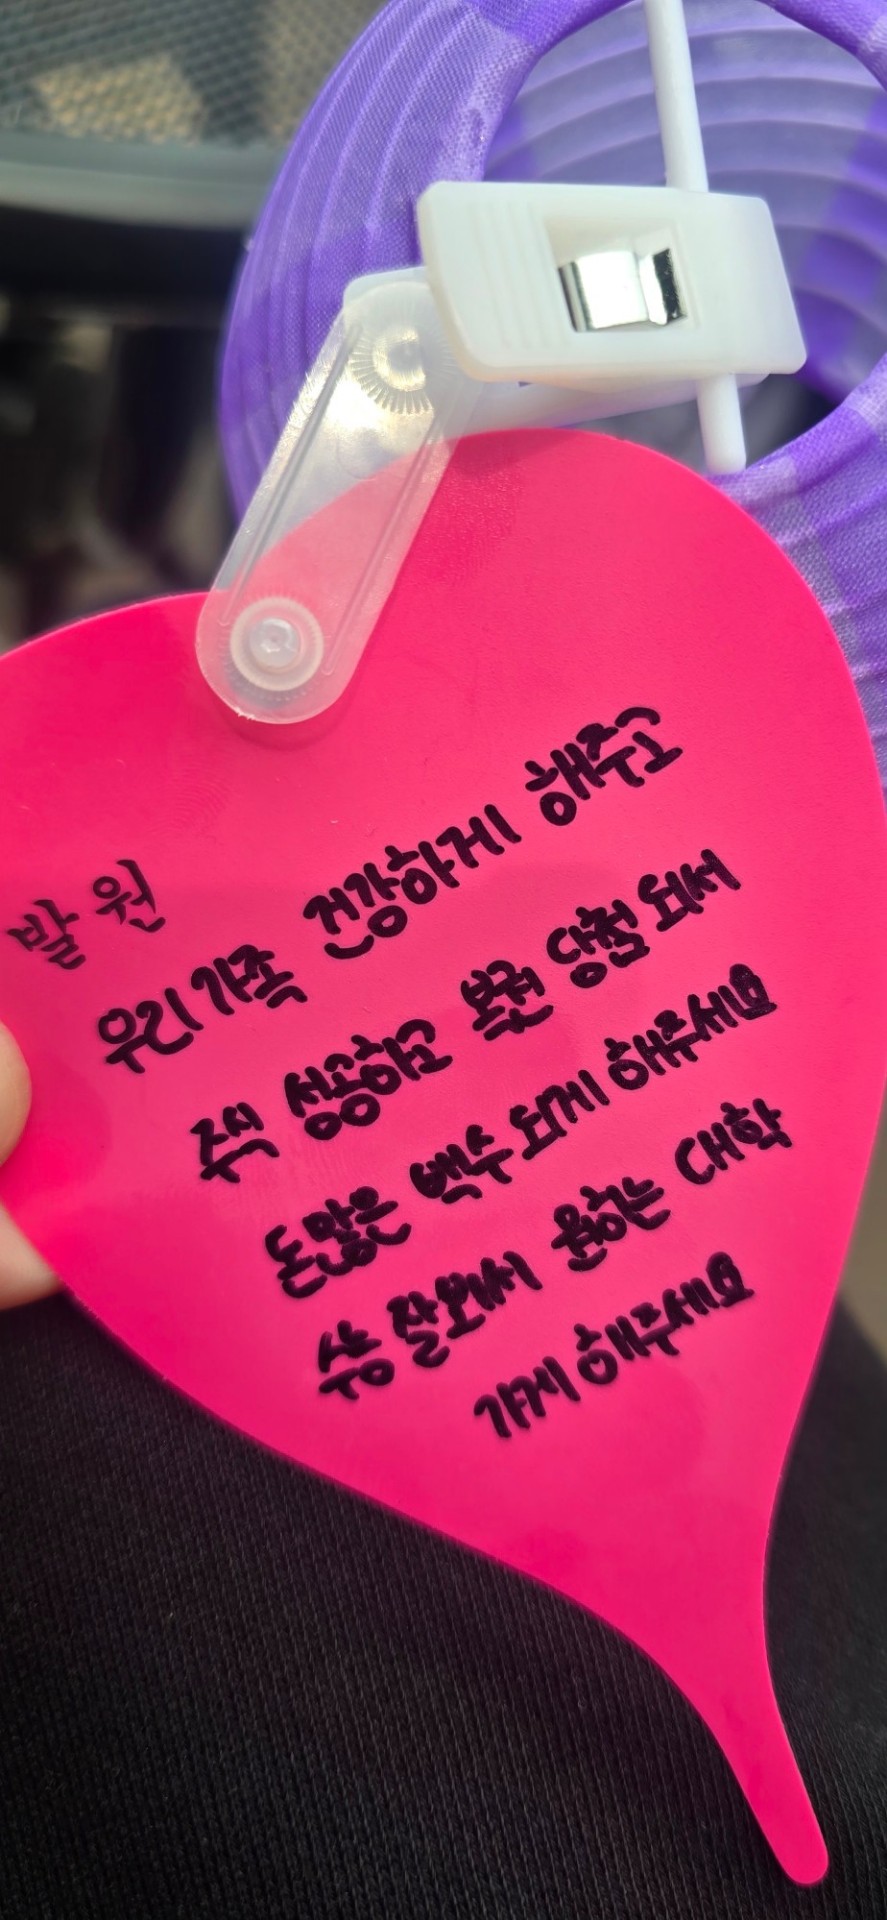 발원
우리가족 건강하게 해주고
주식 성공하고 복권 당첨되서
돈많은 백수 되게 해주세요
수능 잘봐서 원하는 대학
가게 해주세요